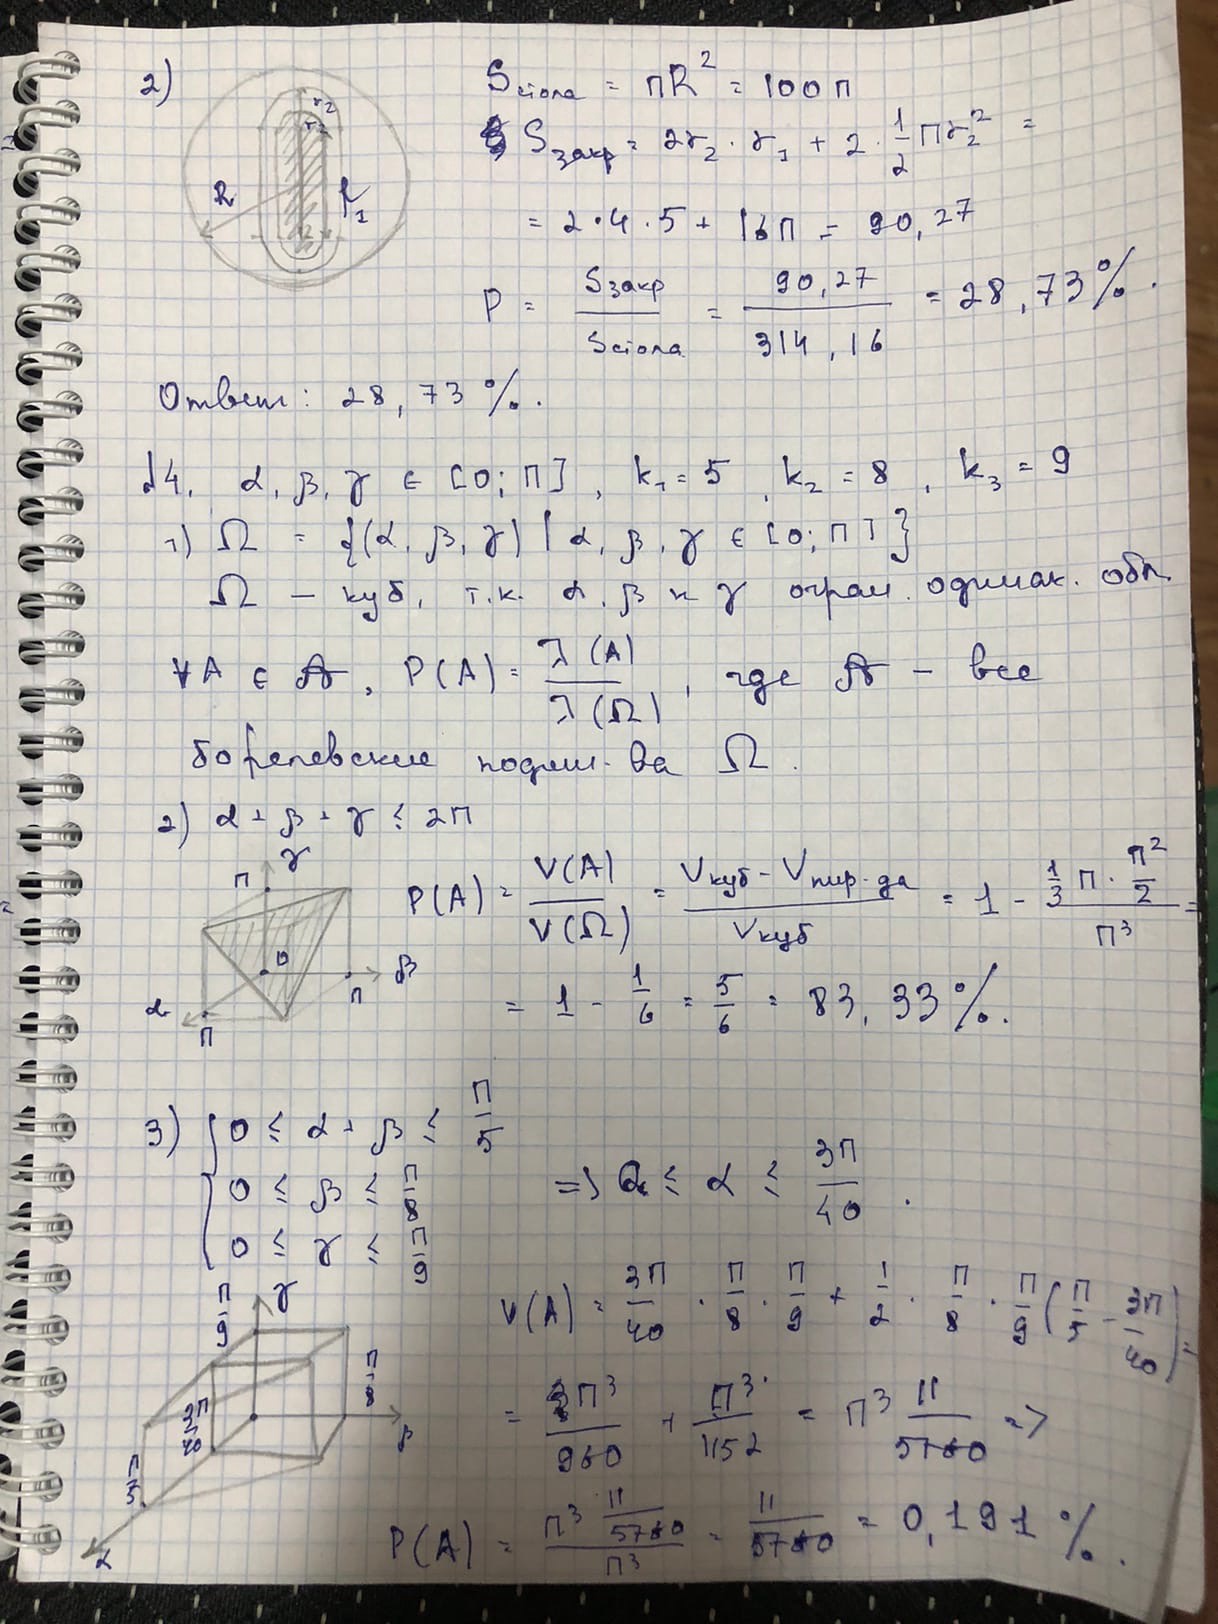 2)
r₂
r₂
R
r₁
Sстола = πR² = 100π
Sзакр = 2r₂ · r₁ + 2 · 1/2 πr₂² =
= 2 · 4 · 5 + 16π = 90,27
P = Sзакр / Sстола = 90,27 / 314,16 = 28,73%.
Ответ: 28,73%.
№4. α, β, γ ∈ [0; π], k₁ = 5, k₂ = 8, k₃ = 9
1) Ω = {(α, β, γ) | α, β, γ ∈ [0; π]}
Ω – куб, т.к. α, β и γ огран. одинак. обл.
∀A ∈ 𝒜, P(A) = λ(A) / λ(Ω), где 𝒜 – все
борелевские подмн-ва Ω.
2) α + β + γ ≤ 2π
γ
π
0
β
π
α
π
P(A) = V(A) / V(Ω) = (Vкуб - Vпир-да) / Vкуб = 1 - (1/3 π · π²/2) / π³ =
= 1 - 1/6 = 5/6 = 83,33%.
3) { 0 ≤ α + β ≤ π/5
0 ≤ β ≤ π/8
0 ≤ γ ≤ π/9
=> 0 ≤ α ≤ 3π/40.
π/9
γ
π/8
3π/40
β
π/5
α
V(A) = 3π/40 · π/8 · π/9 + 1/2 · π/8 · π/9 (π/5 - 3π/40) =
= 3π³/960 + π³/1152 = π³ 11/5760 =>
P(A) = (π³ 11/5760) / π³ = 11/5760 = 0,191%.